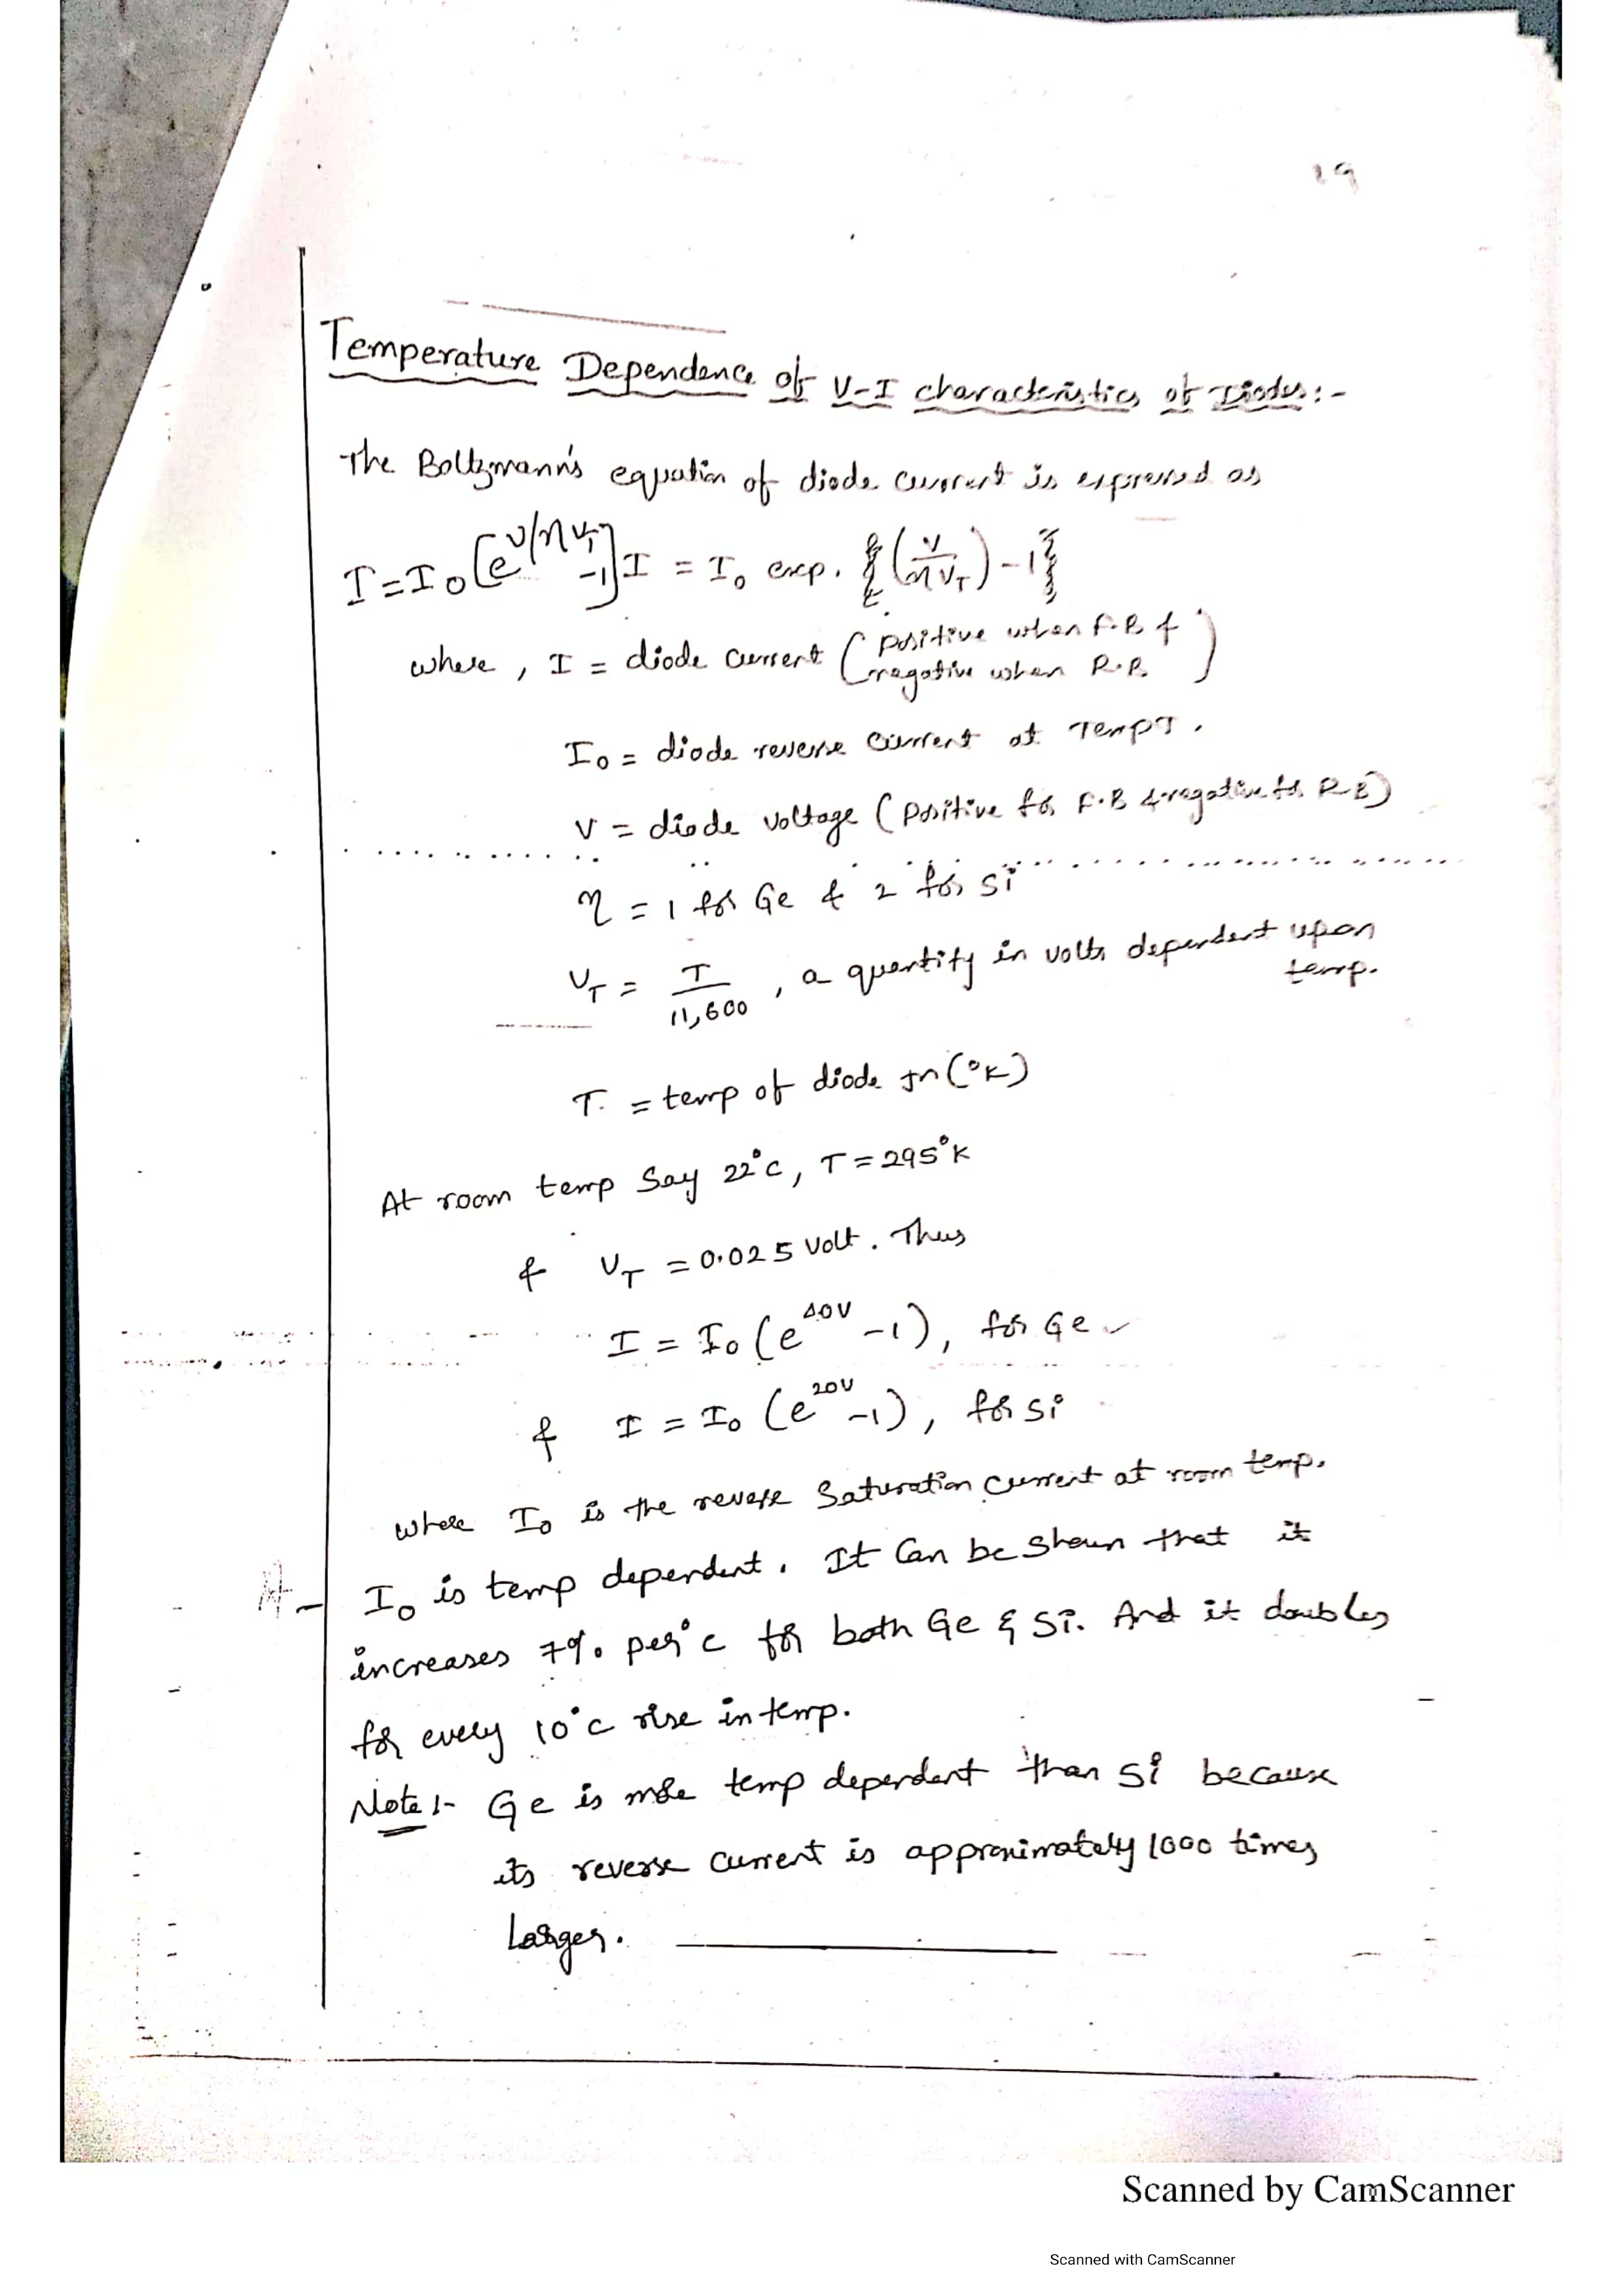 19
Temperature Dependence of V-I characteristics of Diodes:-
The Boltzmann's equation of diode current is expressed as
I=I0[e^V/ηVT -1] I = I0 exp. {(V/ηVT)-1}
where, I = diode current (positive when F.B &
negative when R.B.)
I0 = diode reverse current at Temp T.
V = diode voltage (positive for F.B & negative for R.B)
η = 1 for Ge & 2 for Si
VT = T/11,600, a quantity in volts dependent upon
temp.
T. = temp of diode Jn (°K)
At room temp Say 22°C, T = 295°K
& VT = 0.025 Volt. Thus
I = I0 (e^40V -1), for Ge
& I = I0 (e^20V -1), for Si
where I0 is the reverse Saturation current at room temp.
I0 is temp dependent. It Can be Shown that it
increases 7% per°C for both Ge & Si. And it doubles
for every 10°C rise in temp.
Note:- Ge is more temp dependent than Si because
its reverse current is approximately 1000 times
Larger.
Scanned by CamScanner
Scanned with CamScanner